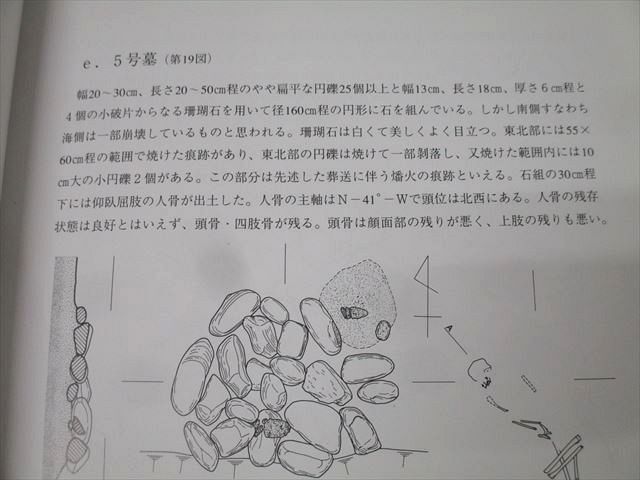 e．５号墓（第19図）
幅20～30㎝、長さ20～50㎝程のやや扁平な円礫25個以上と幅13㎝、長さ18㎝、厚さ６㎝程と
４個の小破片からなる珊瑚石を用いて径160㎝程の円形に石を組んでいる。しかし南側すなわち
海側は一部崩壊しているものと思われる。珊瑚石は白くて美しくよく目立つ。東北部には55×
60㎝程の範囲で焼けた痕跡があり、東北部の円礫は焼けて一部剝落し、又焼けた範囲内には10
㎝大の小円礫２個がある。この部分は先述した葬送に伴う燔火の痕跡といえる。石組の30㎝程
下には仰臥屈肢の人骨が出土した。人骨の主軸はＮ－41°－Ｗで頭位は北西にある。人骨の残存
状態は良好とはいえず、頭骨・四肢骨が残る。頭骨は顔面部の残りが悪く、上肢の残りも悪い。